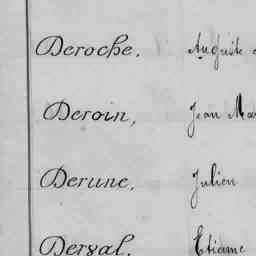 Deroche, Auguste
Deroin, Jean Mar
Derune, Julien
Derval, Etienne